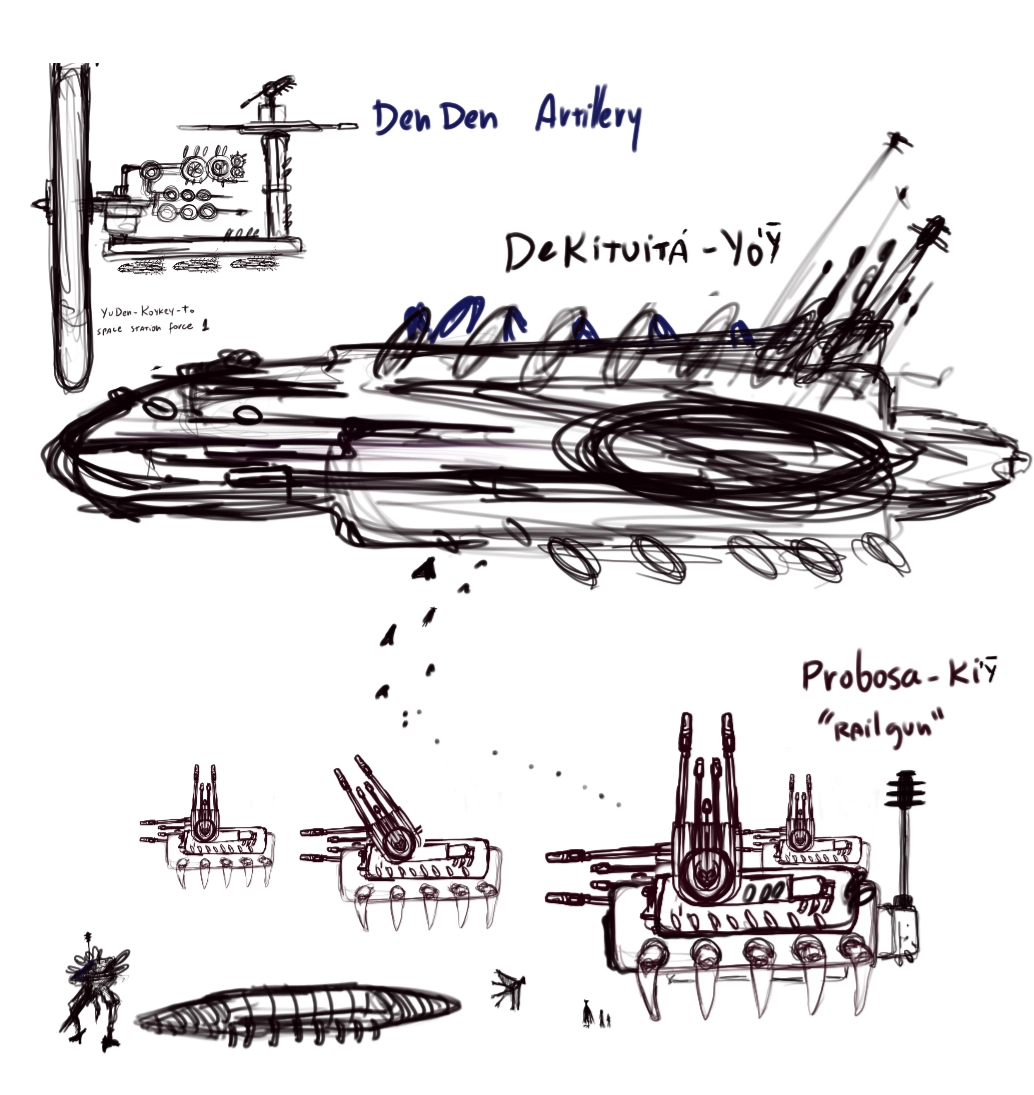 Den Den Artillery
DeKiTUiTÁ - Yo'Ȳ
YuDen - Koykey - to
SPACE STATION force 1
Probosa - Ki'Ȳ
"RAilgun"